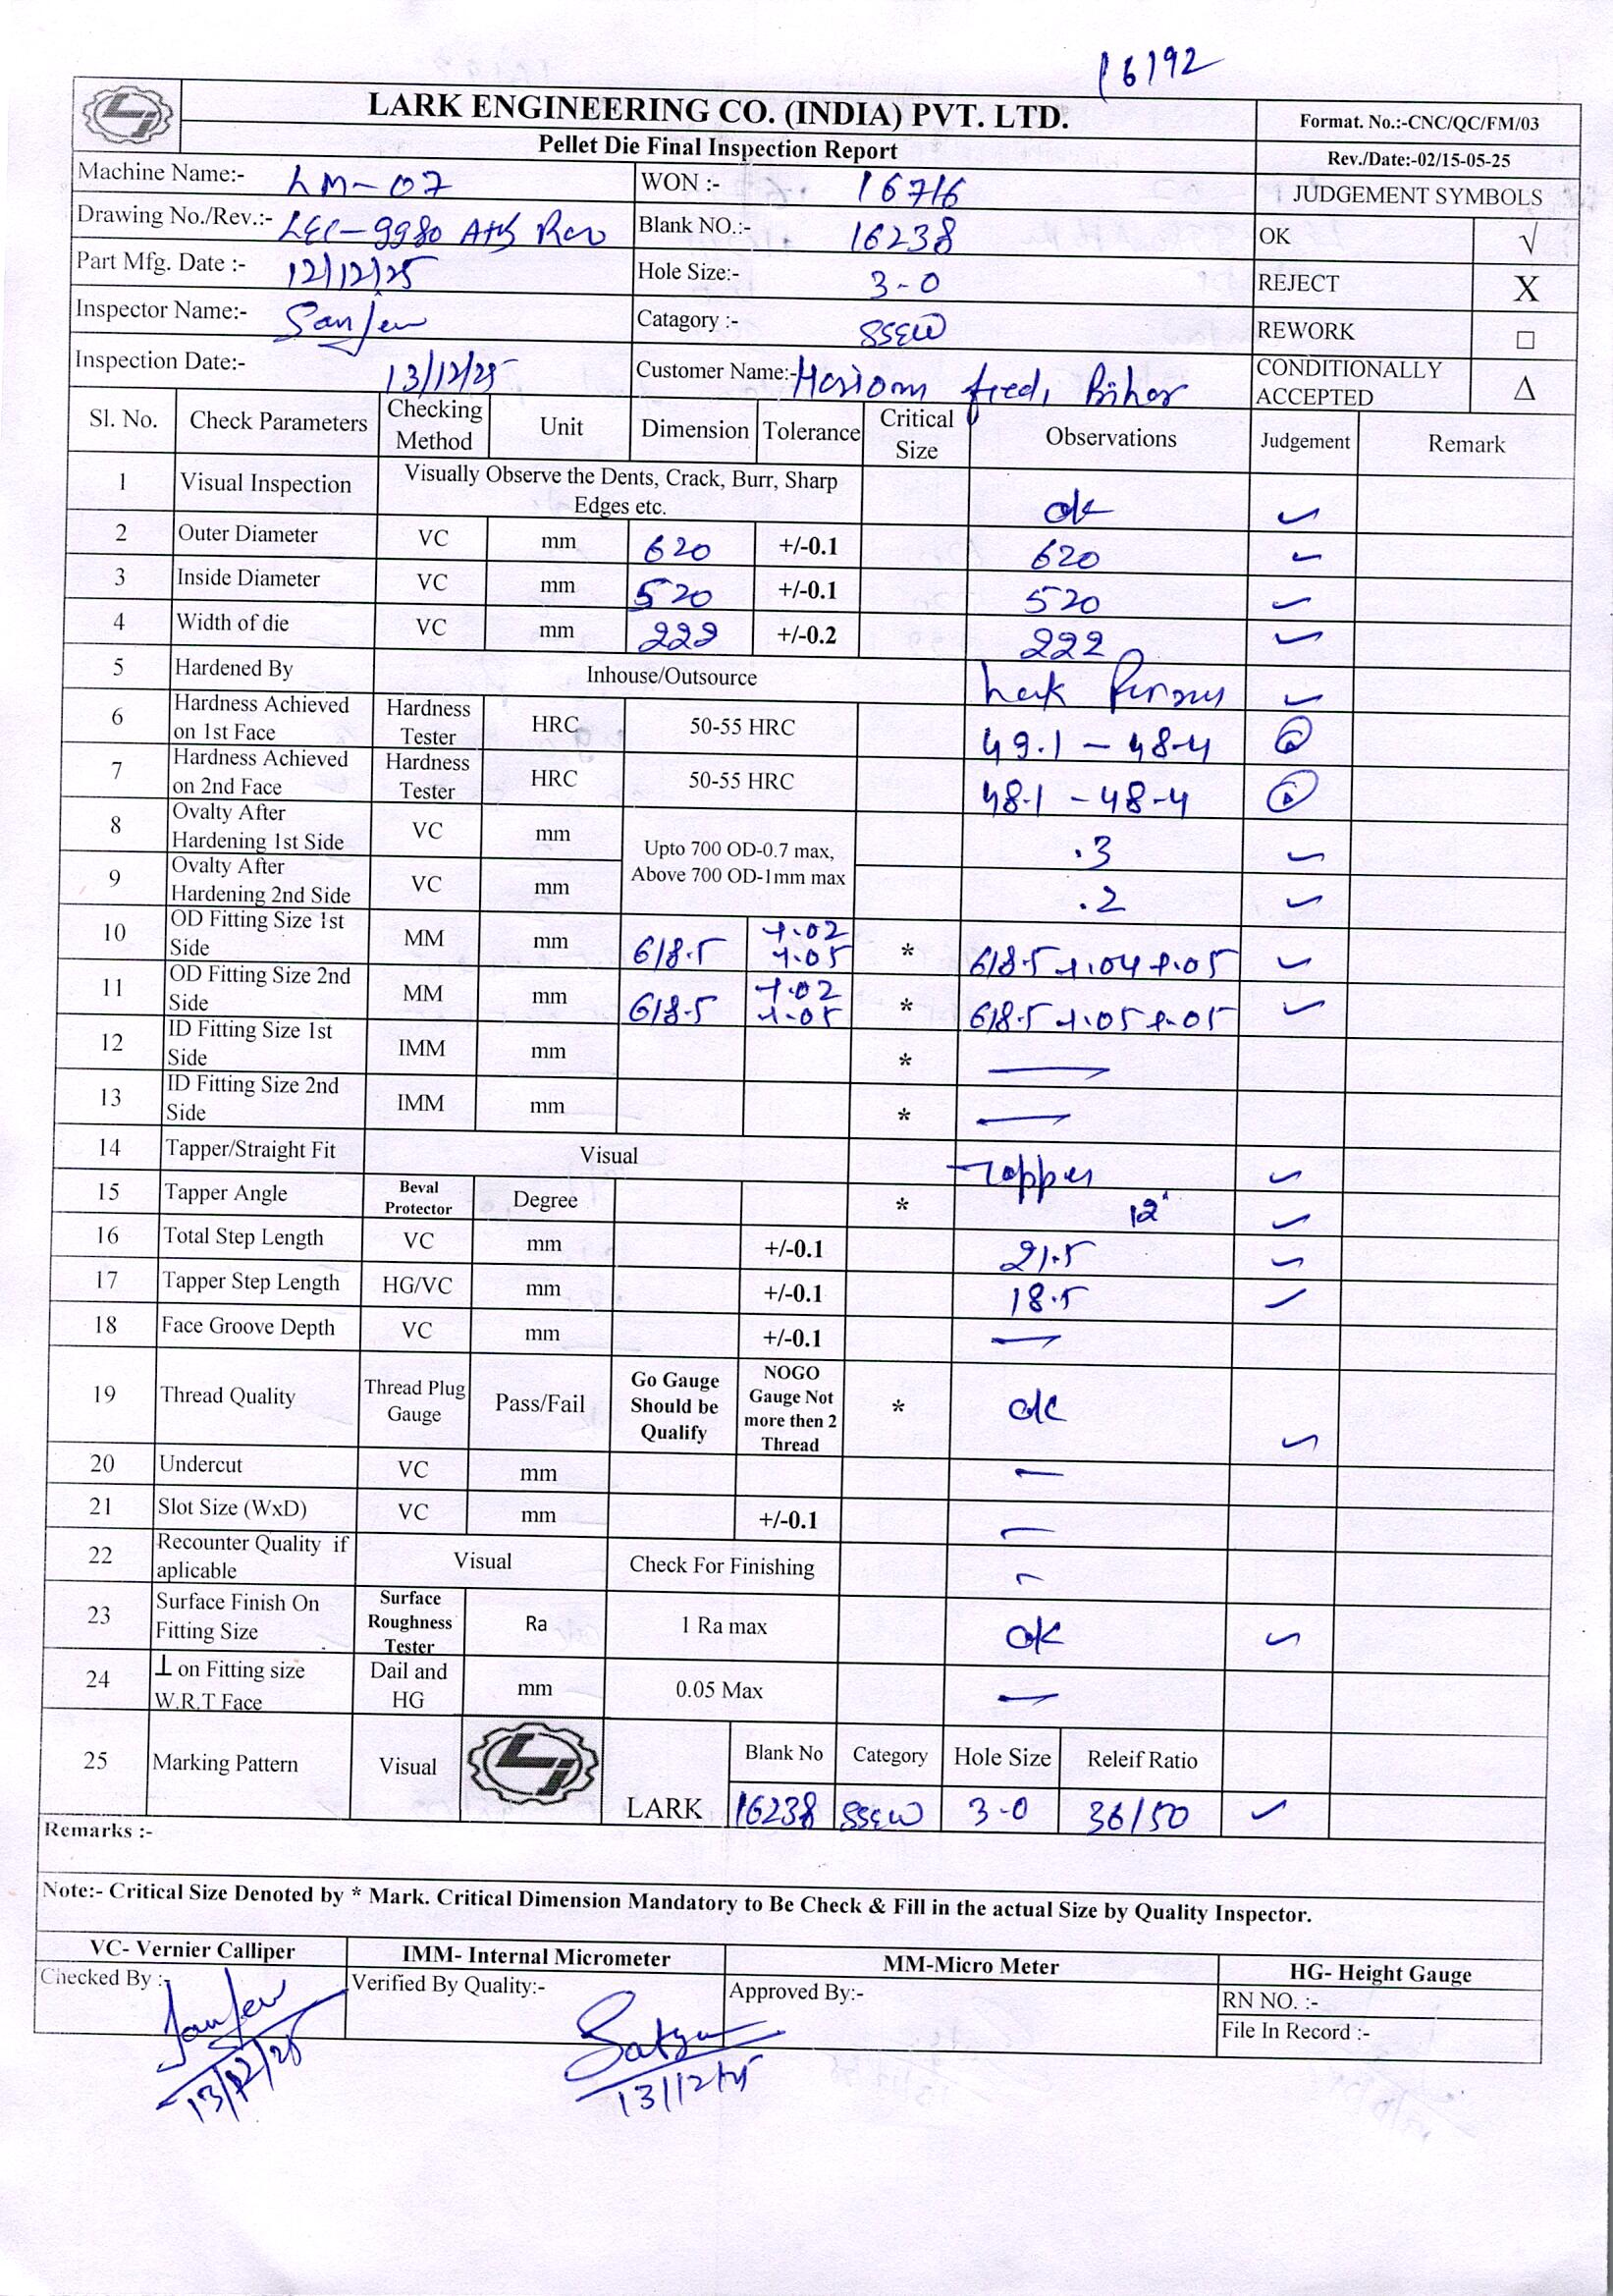 16192
LARK ENGINEERING CO. (INDIA) PVT. LTD.
Format. No.:-CNC/QC/FM/03
Pellet Die Final Inspection Report
Rev./Date:-02/15-05-25
Machine Name:- LM-07 WON :- 16716 JUDGEMENT SYMBOLS
Drawing No./Rev.:- LEC-9980 Blank NO.:- 16238 OK √
Part Mfg. Date :- 12/12/25 Hole Size:- 3-0 REJECT X
Inspector Name:- Sanjeev Catagory :- SSEW REWORK □
Inspection Date:- 13/12/25 Customer Name:- Hariom feed, Bihar CONDITIONALLY ACCEPTED Δ
Sl. No. Check Parameters Checking Method Unit Dimension Tolerance Critical Size Observations Judgement Remark
1 Visual Inspection Visually Observe the Dents, Crack, Burr, Sharp Edges etc. ok ✓
2 Outer Diameter VC mm 620 +/-0.1 620 ✓
3 Inside Diameter VC mm 520 +/-0.1 520 ✓
4 Width of die VC mm 222 +/-0.2 222 ✓
5 Hardened By Inhouse/Outsource Lark ✓
6 Hardness Achieved on 1st Face Hardness Tester HRC 50-55 HRC 49.1 - 48-4
7 Hardness Achieved on 2nd Face Hardness Tester HRC 50-55 HRC 48.1 - 48-4
8 Ovalty After Hardening 1st Side VC mm Upto 700 OD-0.7 max, Above 700 OD-1mm max .3 ✓
9 Ovalty After Hardening 2nd Side VC mm .2 ✓
10 OD Fitting Size 1st Side MM mm 618.5 +.02 +.05 * 618.5 +.04 +.05 ✓
11 OD Fitting Size 2nd Side MM mm 618.5 +.02 +.05 * 618.5 +.05 +.05 ✓
12 ID Fitting Size 1st Side IMM mm * —
13 ID Fitting Size 2nd Side IMM mm * —
14 Tapper/Straight Fit Visual Tapper ✓
15 Tapper Angle Beval Protector Degree * 12° ✓
16 Total Step Length VC mm +/-0.1 21.5 ✓
17 Tapper Step Length HG/VC mm +/-0.1 18.5 ✓
18 Face Groove Depth VC mm +/-0.1 —
19 Thread Quality Thread Plug Gauge Pass/Fail Go Gauge Should be Qualify NOGO Gauge Not more then 2 Thread * ok ✓
20 Undercut VC mm —
21 Slot Size (WxD) VC mm +/-0.1 —
22 Recounter Quality if aplicable Visual Check For Finishing —
23 Surface Finish On Fitting Size Surface Roughness Tester Ra 1 Ra max ok ✓
24 ⊥ on Fitting size W.R.T Face Dail and HG mm 0.05 Max —
25 Marking Pattern Visual LARK Blank No Category Hole Size Releif Ratio
16238 SSEW 3-0 36/50 ✓
Remarks :-
Note:- Critical Size Denoted by * Mark. Critical Dimension Mandatory to Be Check & Fill in the actual Size by Quality Inspector.
VC- Vernier Calliper IMM- Internal Micrometer MM-Micro Meter HG- Height Gauge
Checked By :- Sanjeev Verified By Quality:- Approved By:- RN NO. :-
File In Record :-
13/12/25 13/12/25